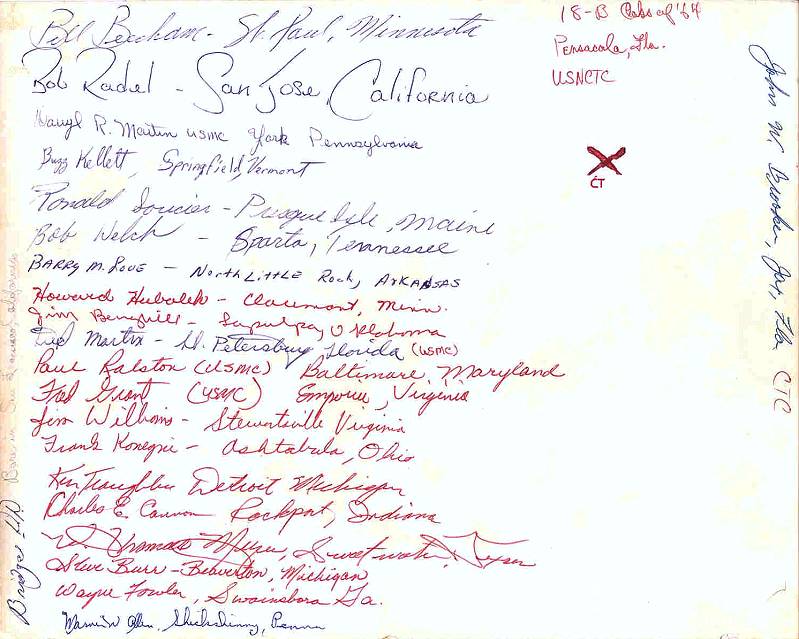 Bill Beecham - St. Paul, Minnesota
Bob Radel - San Jose, California
Daryl R. Martin USMC York Pennsylvania
Buzz Kellett, Springfield, Vermont
Ronald Soucier - Presque Isle, Maine
Bob Welch - Sparta, Tennessee
BARRY M. LOVE - NORTH LITTLE ROCK, ARKANSAS
Howard Hubalek - Claremont, Minn.
Jim - Sapulpa, Oklahoma
Ted Martin - St. Petersburg Florida (USMC)
Paul Ralston (USMC) Baltimore, Maryland
Fred Grant (USMC) Emporia, Virginia
Jim Williams - Stewartsville Virginia
Frank - Ashtabula, Ohio
Ken Detroit Michigan
Charles E. Cannon Rockport, Indiana
Thomas Sweetwater, Texas
Steve Burr - Beaverton, Michigan
Wayne Fowler, Swainsboro Ga.
Shickshinny, Penna
18-B Class of '64
Pensacola, Fla.
USNCTC
X
CT
John W. Brooker, Jax, Fla CTC
Bridges